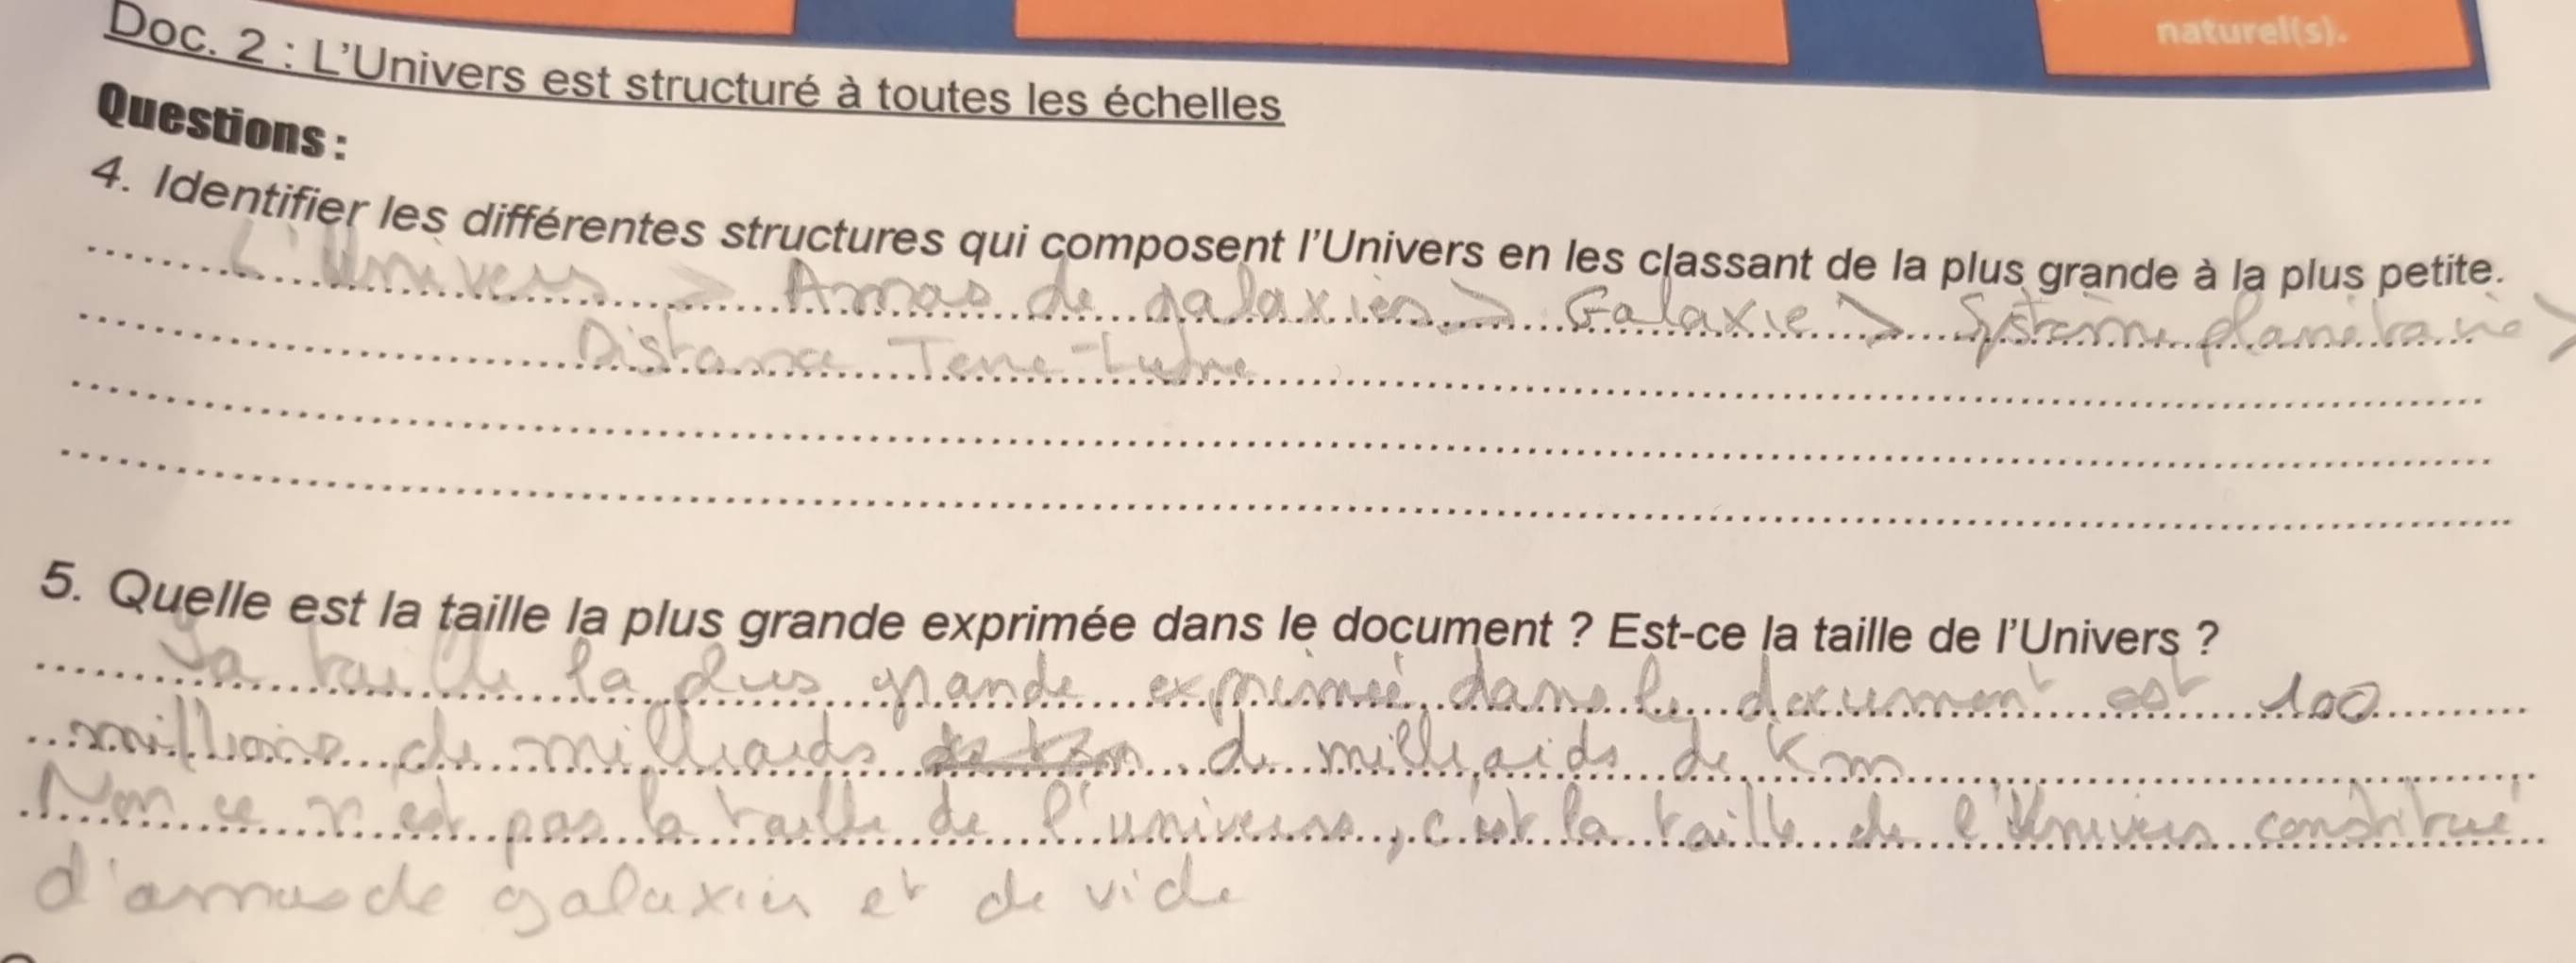 naturel(s).
Doc. 2 : L'Univers est structuré à toutes les échelles
Questions :
4. Identifier les différentes structures qui composent l'Univers en les classant de la plus grande à la plus petite.
L'Univers > Amas de galaxies > Galaxie > Système planétaire >
Distance Terre-Lune
5. Quelle est la taille la plus grande exprimée dans le document ? Est-ce la taille de l'Univers ?
La taille la plus grande exprimée dans le document est 100
millions de milliards de km de milliards de km
Non ce n'est pas la taille de l'univers, c'est la taille de l'Univers constitué
d'amas de galaxies et de vide